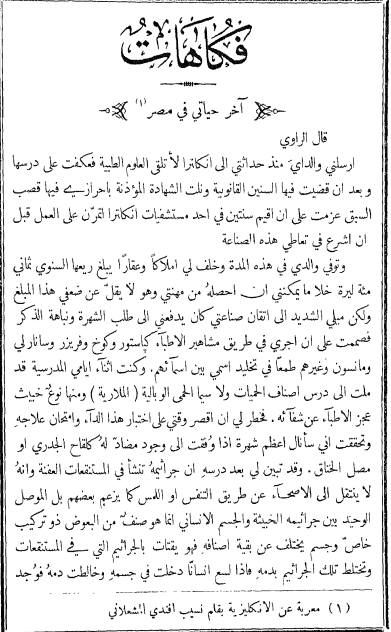 فكاهات
آخر حياتي في مصر (١)
قال الراوي
ارسلني والدايَ منذ حداثتي الى انكلترا لأتلقى العلوم الطبية فعكفت على درسها
وبعد ان قضيت فيها السنين القانونية ونلت الشهادة المؤذنة باحرازي فيها قصب
السبق عزمت على ان اقيم سنتين في احد مستشفيات انكلترا اتمرّن على العمل قبل
ان اشرع في تعاطي هذه الصناعة
وتوفي والدي في هذه المدة وخلف لي املاكاً وعقاراً يبلغ ريعها السنوي ثماني
مئة ليرة خلا ما يمكنني ان احصلهُ من مهنتي وهو لا يقلّ عن ضعفي هذا المبلغ
ولكن ميلي الشديد الى اتقان صناعتي كان يدفعني الى طلب الشهرة ونباهة الذكر
فصممت على ان اجري في طريق مشاهير الاطباء كپاستور وكوخ وفريزر وسانارلي
ومانسون وغيرهم طمعاً في تخليد اسمي بين اسمآئهم. وكنت اثنآء ايامي المدرسية قد
ملت الى درس اصناف الحميات ولا سيما الحمى الوبالية (الملارية) ومنها نوعٌ خبيث
عجز الاطبآء عن شفآئه. فخطر لي ان اقصر وقتي على اختبار هذا الدآء وامتحان علاجهِ
وتحققت اني سأنال اعظم شهرة اذا وُفقت الى وجود مضادّ لهُ كلقاح الجدري او
مصل الخناق. وقد تبين لي بعد درسهِ ان جراثيمهُ تنشأ في المستنقعات العفنة وانهُ
لا ينتقل الى الاصحآء عن طريق التنفس او اللمس كما يزعم بعضهم بل الموصل
الوحيد بين جراثيمه الخبيثة والجسم الانساني انما هو صنفٌ من البعوض ذو تركيب
خاصّ وجسم يختلف عن بقية اصنافهِ فهو يقتات بالجراثيم التي في المستنقعات
وتختلط تلك الجراثيم بدمهِ فاذا لسع انساناً دخلت في جسمهِ وخالطت دمهُ فوُجد
(١) معربة عن الانكليزية بقلم نسيب افندي المشعلاني